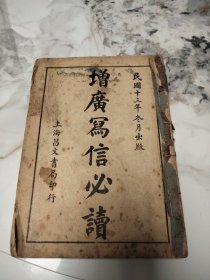 民國十三年冬月出版
增廣寫信必讀
上海昌文書局印行